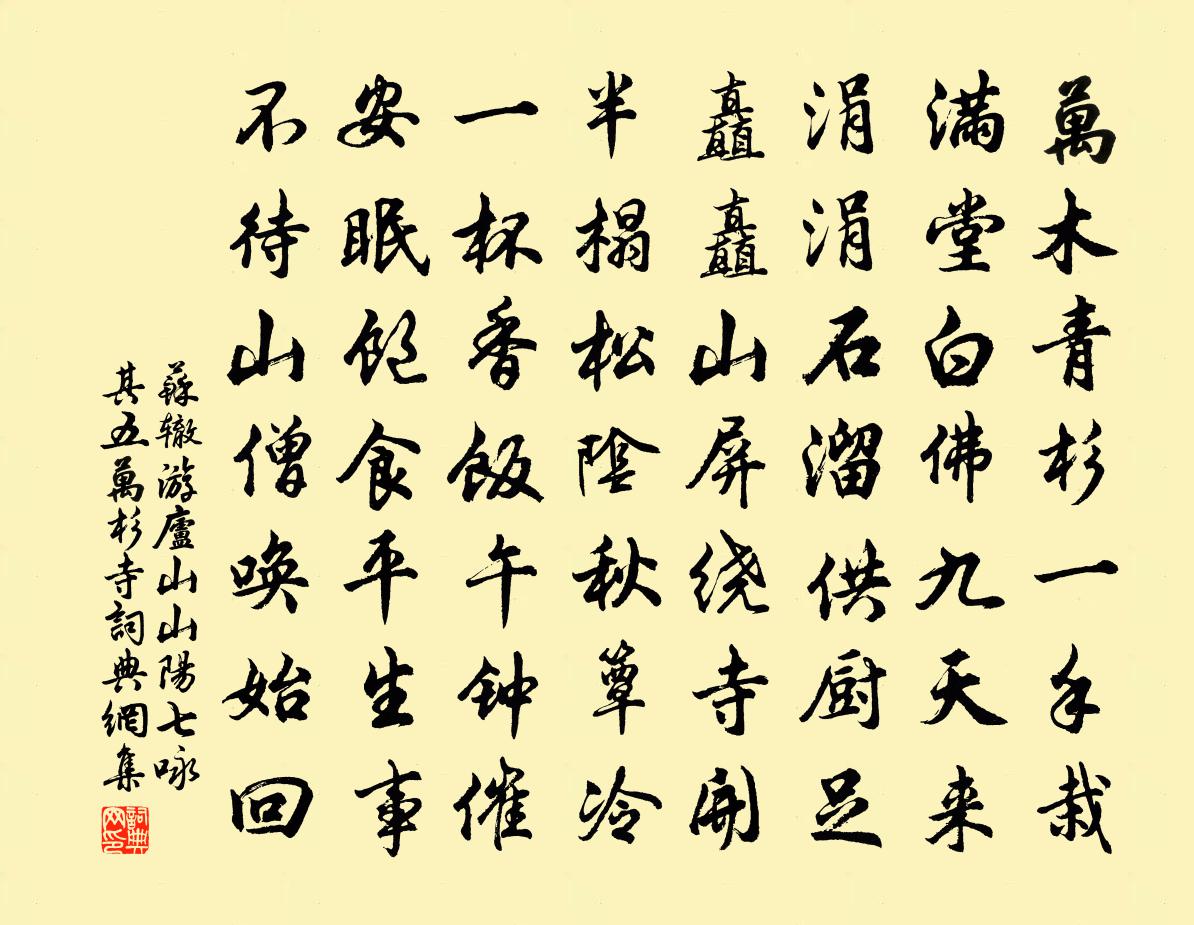 萬木青杉一手栽
满堂白佛九天来
涓涓石溜供厨足
矗矗山屏绕寺開
半榻松陰秋簟冷
一杯香飯午钟催
安眠飽食平生事
不待山僧唤始回
蘇辙游廬山山陽七咏
其五萬杉寺詞典網集
詞典
网印